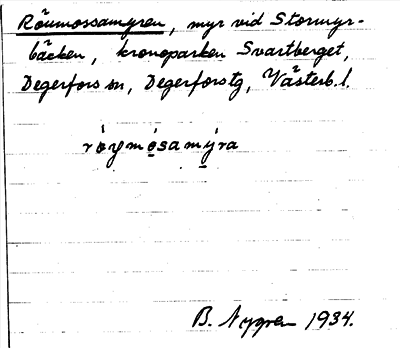 Röumossamyren, myr vid Stormyr-
bäcken, kronoparken Svartberget,
Degerfors sn, Degerforstg, Västerb. l.
röymósamýra
B. Nygren 1934.